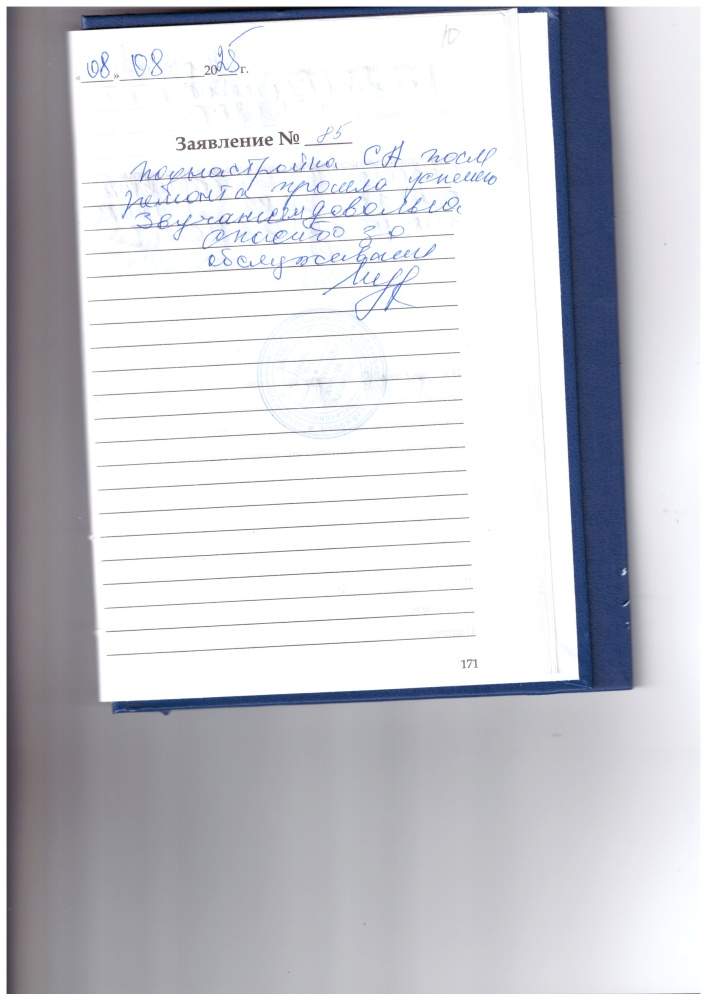 10
«08» 08 2025 г.
Заявление № 85
Поднастройка СА после
ремонта прошла успешно
Звучанием довольна
Спасибо за
обслуживание
171